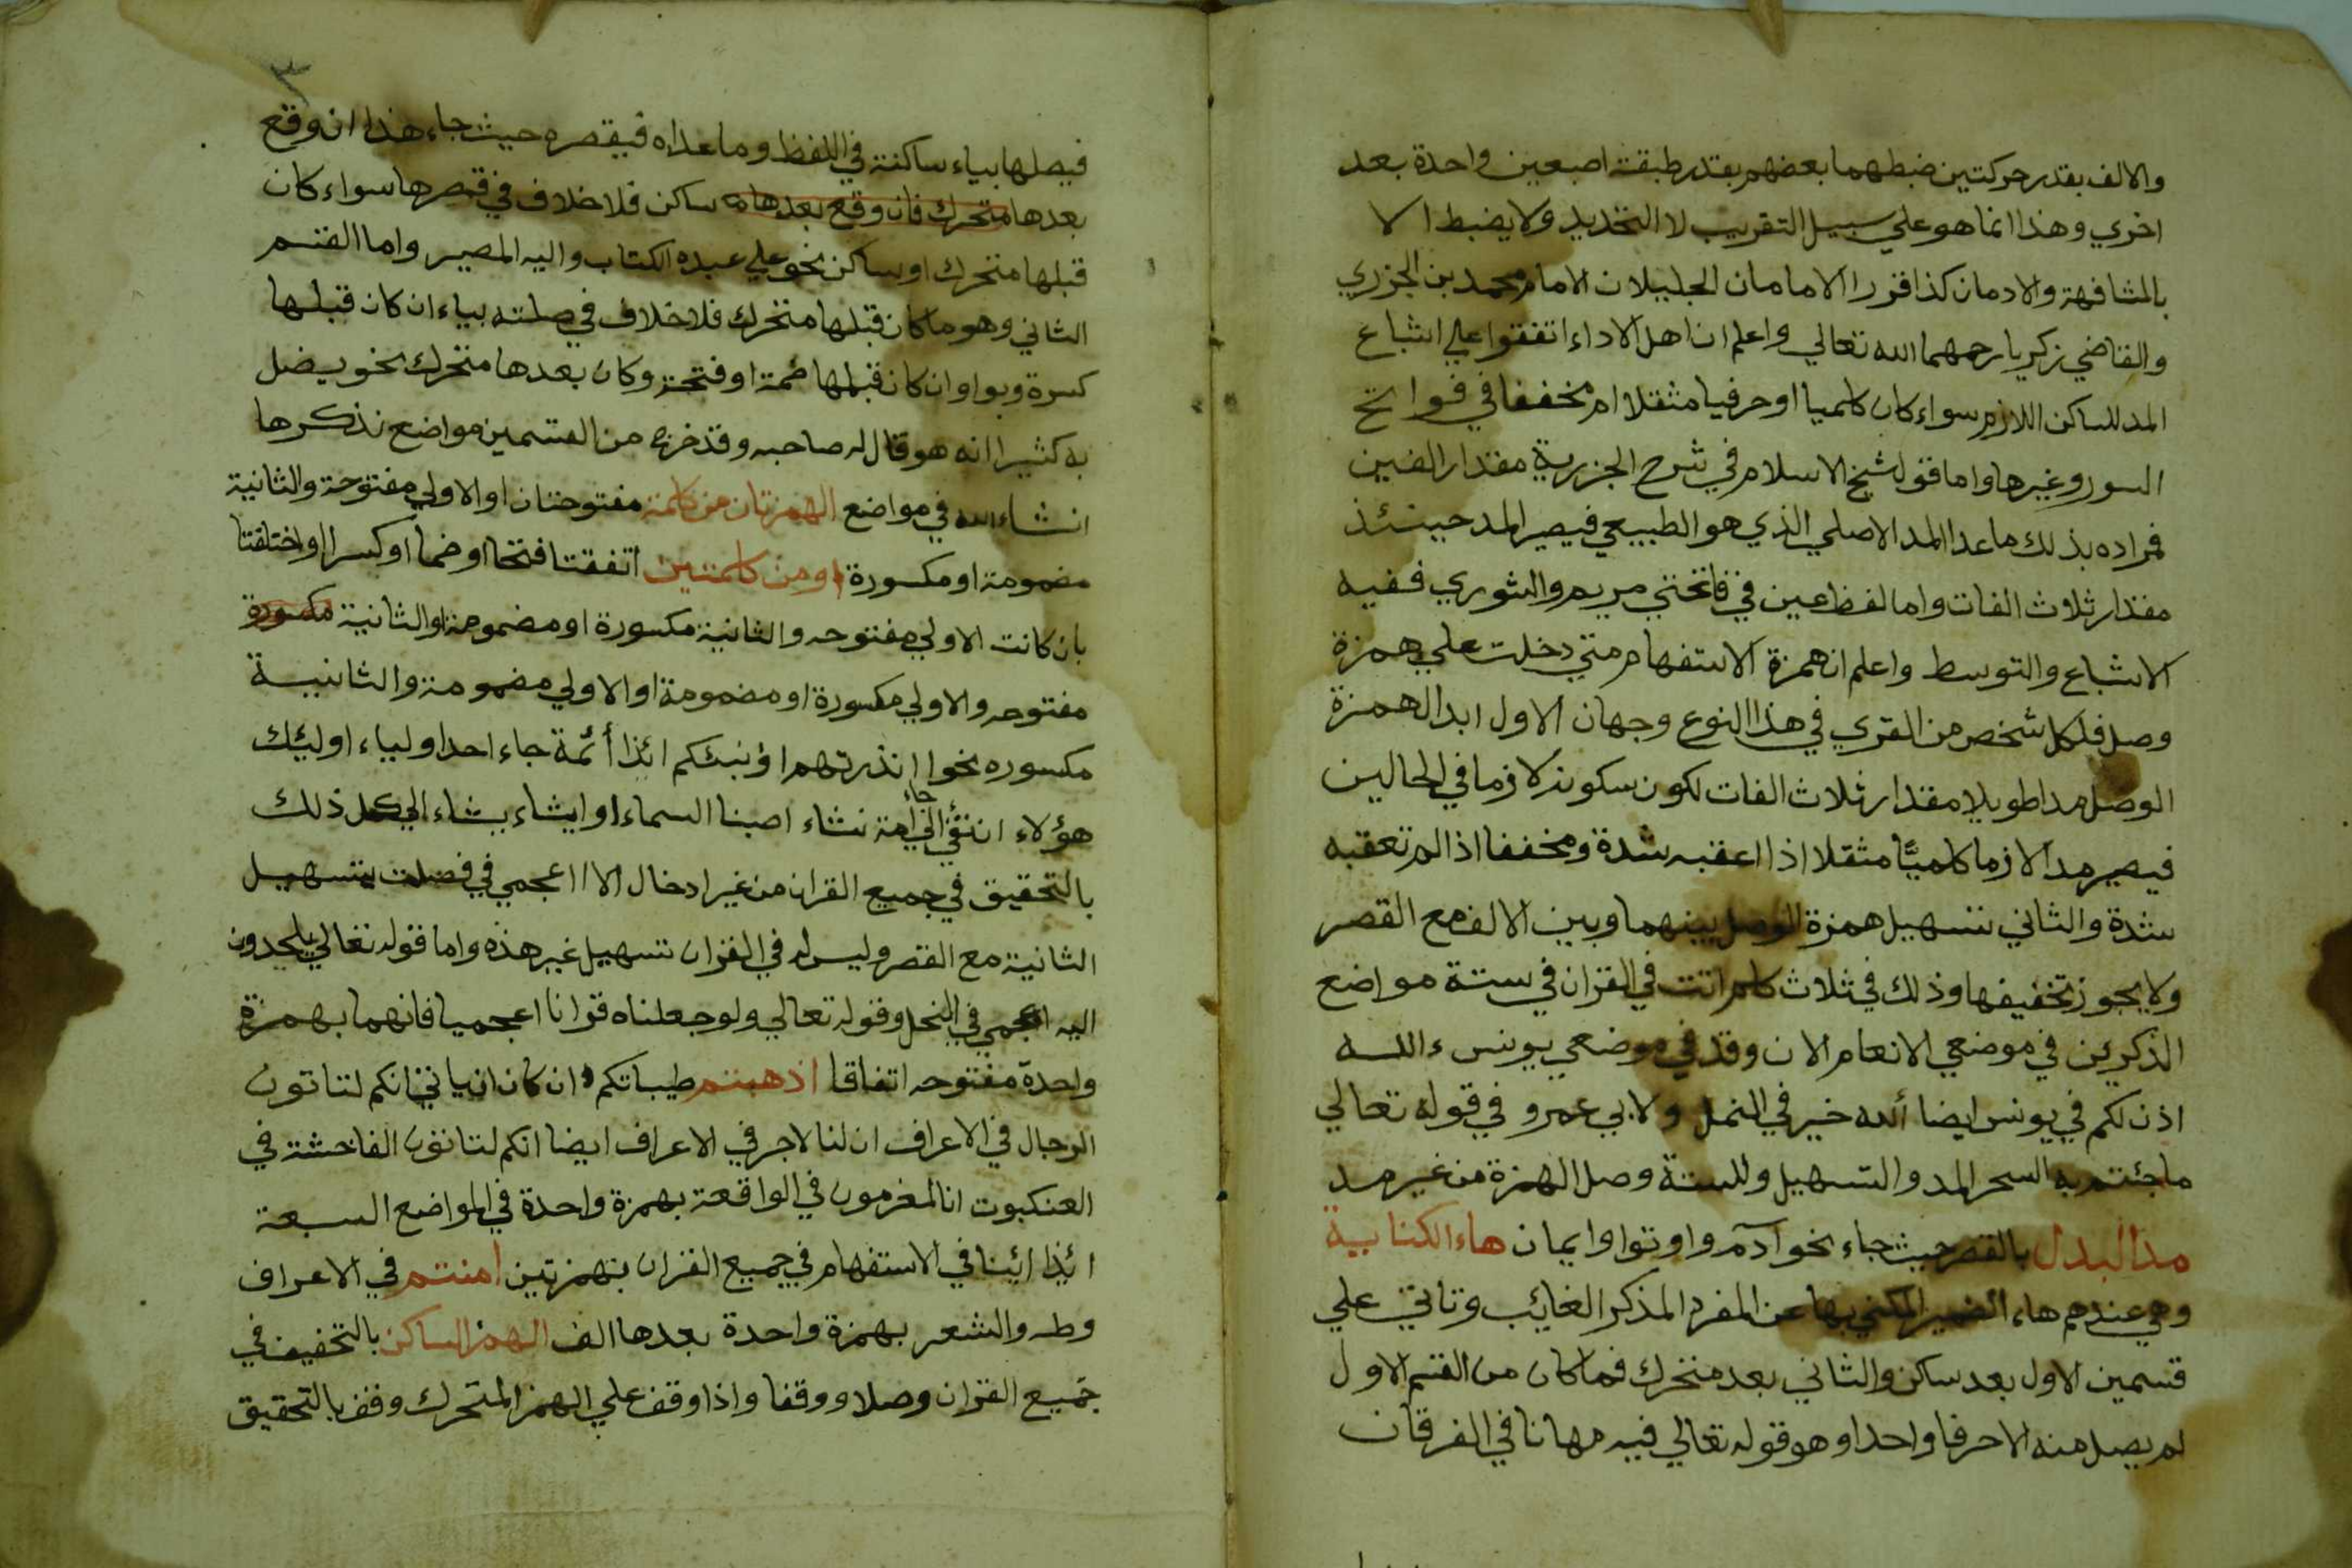 والالف بقدر حركتين ضبطهما بعضهم بقدر طبقة اصبعين واحدة بعد
اخري وهذا انما هو علي سبيل التقريب لا التحديد ولا يضبط الا
بالمشافهة والادمان كذا قررا الامامان الجليلان الامام محمد بن الجزري
والقاضي زكريا رحمهما الله تعالي واعلم ان اهل الاداء اتفقوا علي اشباع
المد للساكن اللازم سواء كان كلميا اوحرفيا مثقلا ام مخففا في فواتح
السور وغيرها واما قول شيخ الاسلام في شرح الجزرية مقدار الفين
فمراده بذلك ما عدا المد الاصلي الذي هو الطبيعي فيصير المد حينئذ
مقدار ثلاث الفات واما لفظ عين في فاتحتي مريم والشوري ففيه
الاشباع والتوسط واعلم ان همزة الاستفهام متي دخلت علي همزة
وصل فلكل شخص من القري في هذا النوع وجهان الاول ابدال همزة
الوصل مدا طويلا مقدار ثلاث الفات لكون سكونه لازما في الحالين
فيصير مدا لازما كلميًّا مثقلا اذا اعقبه شدة ومخففا اذا لم تعقبه
شدة والثاني تسهيل همزة الوصل بينهما وبين الالف مع القصر
ولا يجوز تخفيفها وذلك في ثلاث كلم اتت في القران في ستة مواضع
الذكرين في موضعي الانعام الان وقد في موضعي يونس ءالله
اذن لكم في يونس ايضا ألله خير في النمل ولابي عمرو في قوله تعالي
ماجئتم به السحر المد والتسهيل وللستة وصل الهمزة من غير مد
مد البدل بالقصر حيث جاء نحو آدم واوتوا وايمان هاء الكناية
وهي عندهم هاء الضمير المكني بها عن المفرد المذكر الغائب وتاتي علي
قسمين الاول بعد ساكن والثاني بعد متحرك فما كان من القسم الاول
لم يصل منه الا حرفا واحدا وهو قوله تعالي فيه مهانا في الفرقان
٣
فيصلها بياء ساكنة في اللفظ وماعداه فيقصره حيث جاء هذا ان وقع
بعدها متحرك فان وقع بعدها ساكن فلا خلاف في قصرها سواء كان
قبلها متحرك او ساكن نحو علي عبده الكتاب واليه المصير واما القسم
الثاني وهو ما كان قبلها متحرك فلا خلاف في صلته بياء ان كان قبلها
كسرة وبواو ان كان قبلها ضمة او فتحة وكان بعدها متحرك نحو يضل
به كثيرا انه هو قال له صاحبه وقد خرج من القسمين مواضع نذكرها
ان شاء الله في مواضع الهمزتان من كلمة مفتوحتان او الاولي مفتوحة والثانية
مضمومة او مكسورة او من كلمتين اتفقتا فتحا او ضما او كسرا او اختلفتا
بان كانت الاولي مفتوحه والثانية مكسورة او مضمومة او الثانية مكسورة
مفتوحه والاولي مكسورة او مضمومة او الاولي مضمومة والثانية
مكسوره نحو اانذرتهم اؤنبئكم ائذا أئمة جاء احد اولياء اوليٕك
هؤلاء ان تفئ الي جاء امة نشاء اصبنا السماء او ايشاء يشاء الي كل ذلك
بالتحقيق في جميع القران من غير ادخال الا ااعجمي في فصلت بتسهيل
الثانية مع القصر وليس له في القران تسهيل غير هذه واما قوله تعالي يلحدون
اليه اعجمي في النحل وقوله تعالي ولوجعلناه قرانا اعجميا فانهما بهمزة
واحدة مفتوحه اتفاقا اذهبتم طيباتكم و ان كان انكم لتاتون
الرجال في الاعراف ان لنا لاجر في الاعراف ايضا انكم لتاتون الفاحشة في
العنكبوت انا لمغرمون في الواقعة بهمزة واحدة في المواضع السبعة
ائذا ائينا في الاستفهام في جميع القران بهمزتين امنتم في الاعراف
وطه والشعر بهمزة واحدة بعدها الف الهمز الساكن بالتخفيف في
جميع القران وصلا ووقفا واذا وقف علي الهمز المتحرك وقف بالتحقيق